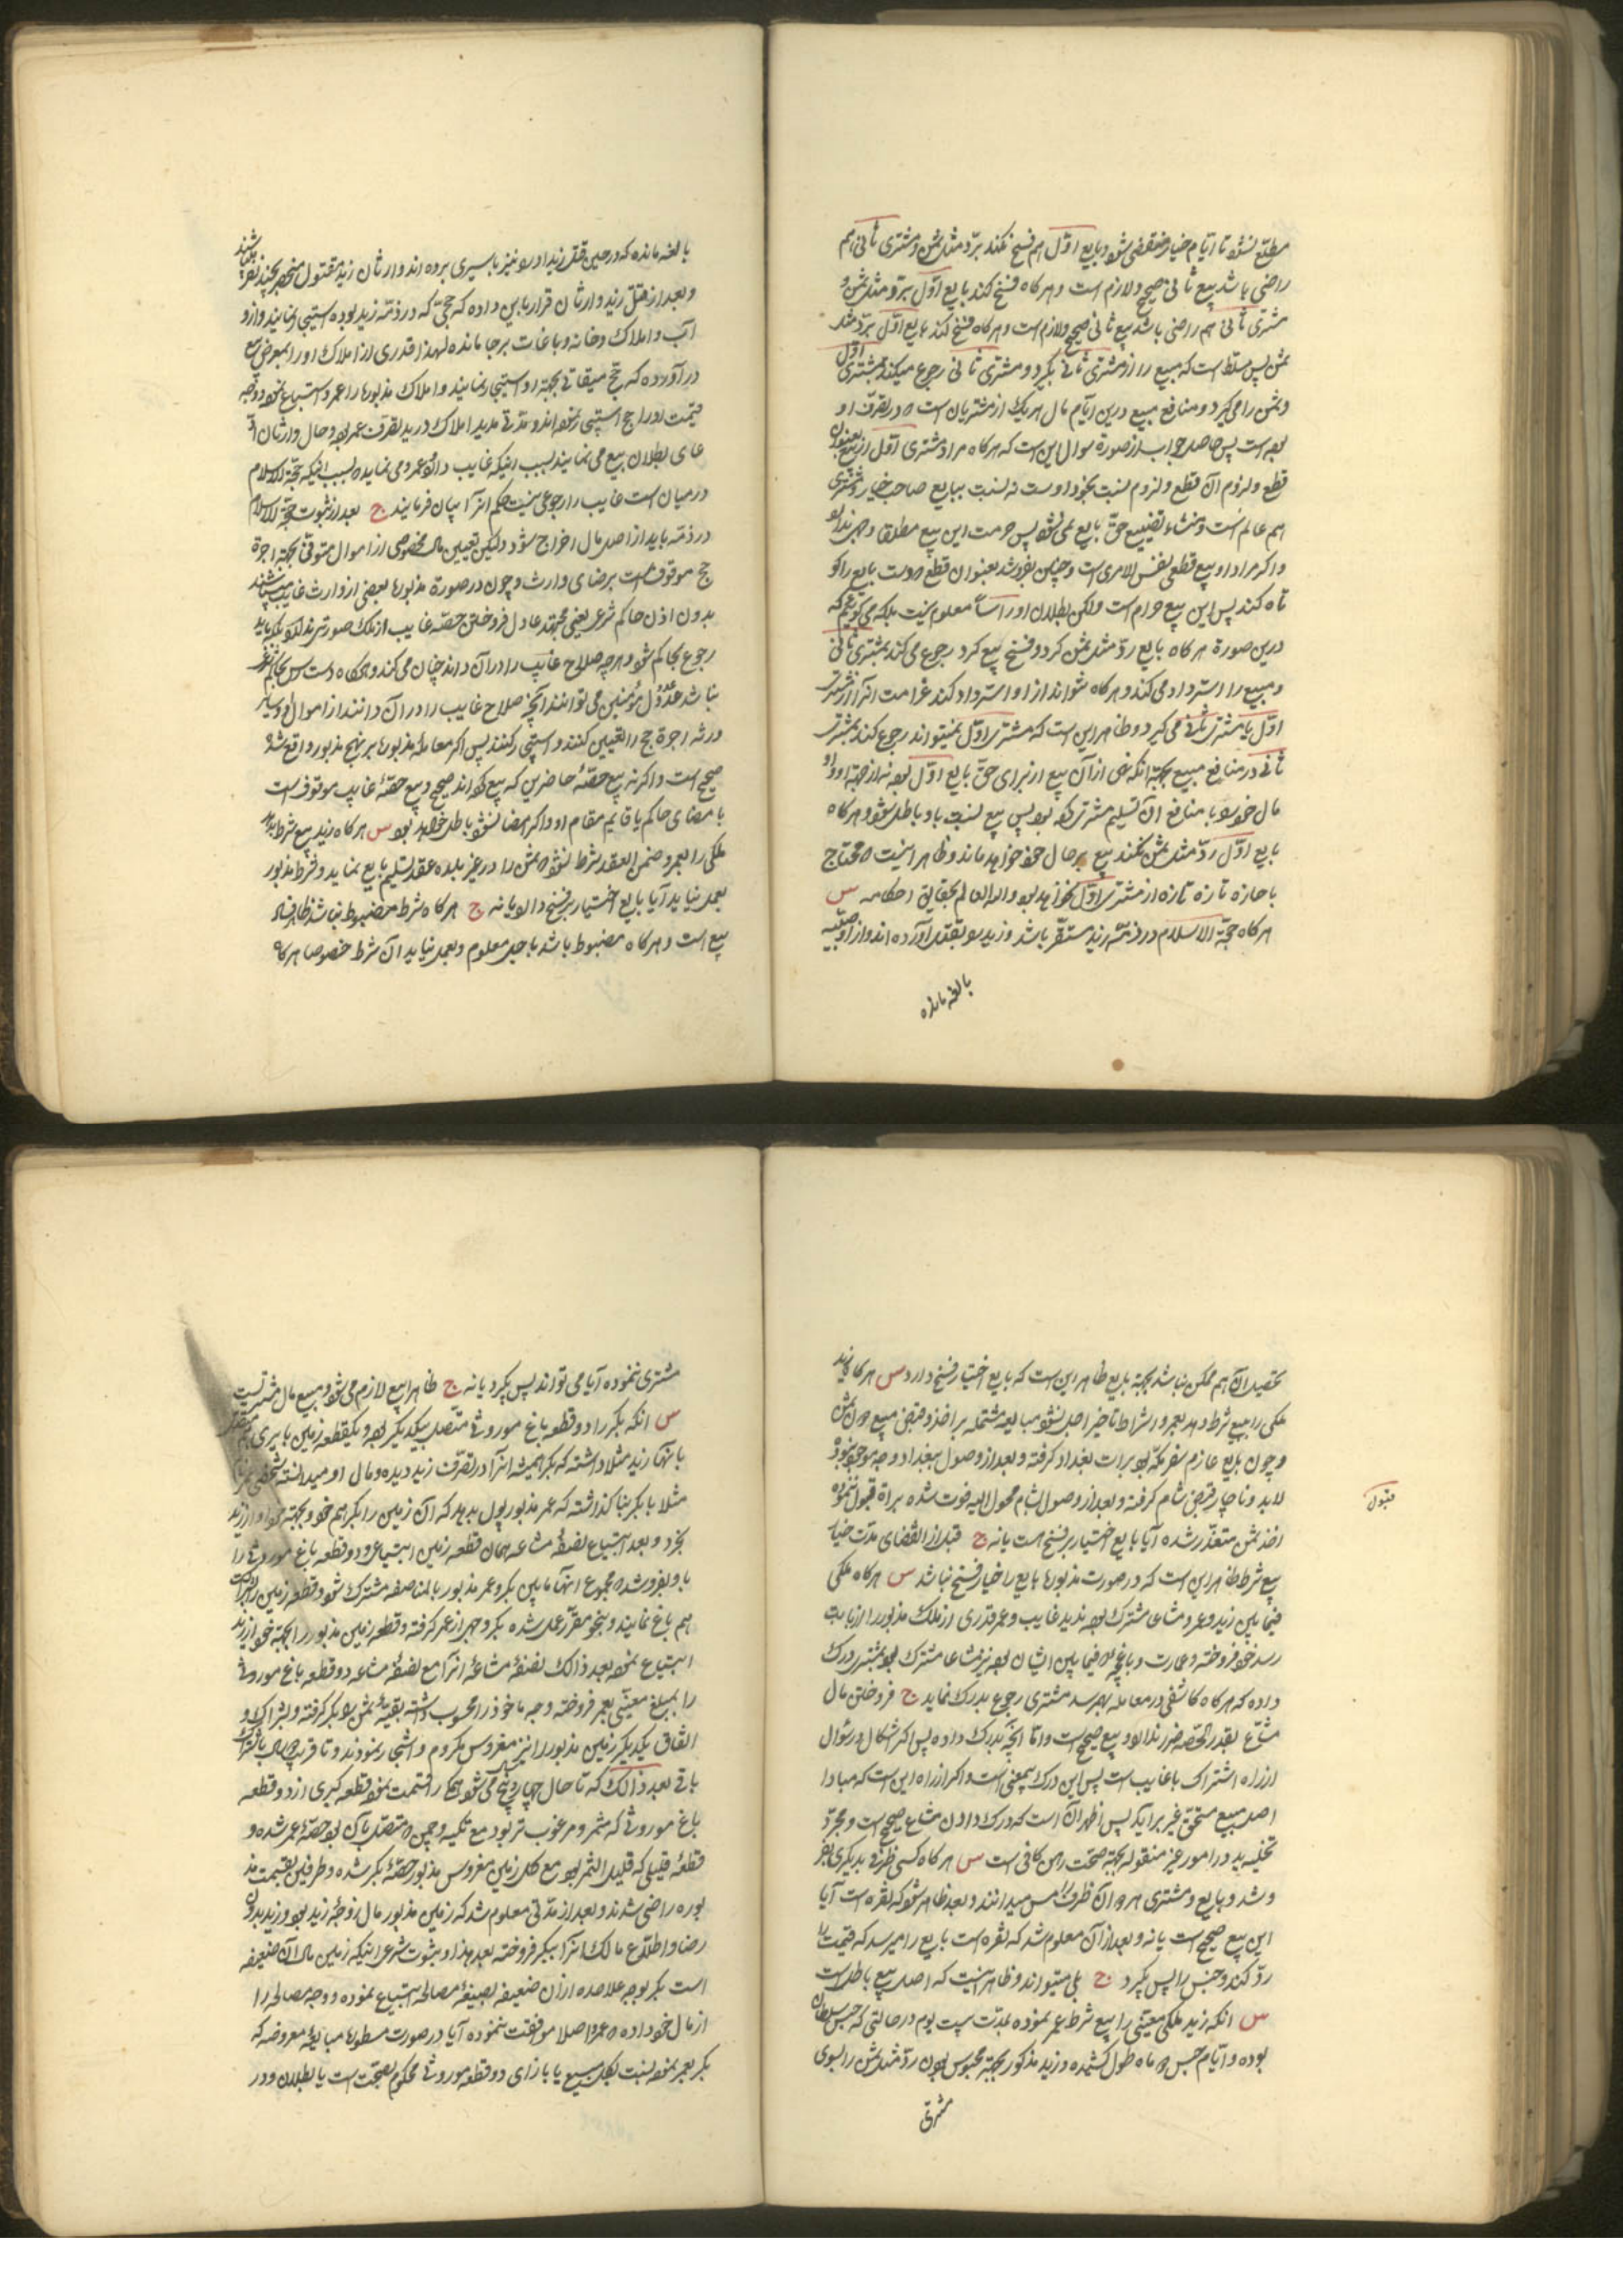 مطلع نشود تا ایام خیار منقضی شود و بایع اول هم فسخ نکند برد مثل ثمن و مشتری ثانی هم
راضی باشد بیع ثانی صحیح و لازم است و هر کاه فسخ کند بایع اول برد مثل ثمن و
مشتری ثانی هم راضی باشد بیع ثانی صحیح و لازم است و هر کاه فسخ کند بایع اول برد مثل
ثمن پس مسلط است که مبیع را از مشتری ثانی بکیرد و مشتری ثانی رجوع میکند بمشتری اول
و ثمن را می کیرد و منافع مبیع درین ایام مال هر یک از مشتریان است که در تصرف او
بوده است پس حاصل جواب از صورة سوال این است که هر کاه مراد مشتری اول از بیع بعنوان
قطع و لزوم آن قطع و لزوم نسبت بخود اوست نه نسبت ببایع صاحب خیار و مشتری
هم عالم است و منشاء تضییع حق بایع نمی شود پس حرمت این بیع مطلقا وجهی ندارد
و اکر مراد او بیع قطعی نفس الامری است و چنین بفروشد بعنوان قطع که دست بایع را کو
تاه کند پس این بیع حرام است ولکن بطلان او راسا معلوم نیست بلکه می کوییم که
درین صورة هر کاه بایع رد مثل ثمن کرد و فسخ بیع کرد رجوع می کند بمشتری ثانی
و مبیع را استرداد می کند و هر کاه نتواند از او استرداد کند غرامت آنرا از مشتری
اول یا مشتری ثانی می کیرد و ظاهر این است که مشتری اول نمیتواند رجوع کند بمشتری
ثانی در منافع مبیع بجهة آنکه نهی از آن بیع از برای حق بایع اول بوده نه از جهة او و او
مال خود را با منافع آن تسلیم مشتری کرده بود پس بیع نسبت باو باطل نشود و هر کاه
بایع اول رد مثل ثمن نکند بیع بر حال خود خواهد ماند و ظاهر اینست که محتاج
باجازه تازه تازه از مشتری اول نخواهد بود والله العالم بحقایق احکامه س
هر کاه حجة الاسلام در ذمه زید مستقر باشد و زید را بقتل آورده اند و از او صبیه
بالغه مانده
بالغه مانده که در حین قتل زید او را نیز باسیری برده اند و وارثان زید مقتول منحصر بچند نفر باشند
و بعد از قتل زید وارثان قرار باین داده که حجی که در ذمه زید بوده استیجار نمایند و از او
آب و املاک و خانه و باغات بر جا مانده لهذا قدری از املاک او را بمعرض بیع
در آورده که حج میقاتی بجهة او استیجار نمایند و املاک مذبوره را عمرو ابتیاع نموده و وجه
قیمت او را حج استیجار نموده اند و مدتی مدید املاک در ید تصرف عمر بوده و حال وارثان اد
عای بطلان بیع می نمایند بسبب اینکه غایب داشته و عمرو می نماید که بسبب اینکه حجة الاسلام
در میان است غایب را رجوعی نیست حکم آنرا بیان فرمایند ج بعد از ثبوت حجة الاسلام
در ذمه باید از اصل مال اخراج شود ولیکن تعیین مال مخصوصی از اموال متوفی بجهة اجرة
حج موقوف است برضای وارث و چون در صورة مذبوره بعضی از وارث غایب میباشند
بدون اذن حاکم شرع یعنی مجتهد عادل فروختن حصه غایب از ملک صورتی ندارد بلکه باید
رجوع بحاکم شود هر چه صلاح غایب را در آن داند چنان می کند و هر کاه دست رس بحاکم شرع
نباشد عدول مؤمنین می توانند آنچه صلاح غایب را در آن دانند از اموال او و سایر
ورثه اجرة حج را تعیین کنند و استیجار کنند پس اکر معامله مذبوره بر نهج مذبور واقع شده
صحیح است و اکر نه بیع حصه حاضرین که بیع کرده اند صحیح و بیع حصه غایب موقوف است
بامضای حاکم یا قایم مقام او و اکر امضا نشود باطل خواهد بود س هر کاه زید بیع شرط نماید
ملکی را بعمرو و ضمن العقد شرط نشود که ثمن را در غیر بلده عقد تسلیم بایع نماید و شرط مذبور
بعمل نیاید آیا بایع اختیار بر فسخ دارد یا نه ج هر کاه شرط مضبوط نباشد ظاهر فساد
بیع است و هر کاه مضبوط باشد باجل معلوم و بعمل نیاید آن شرط خصوصا هر کاه
تحصیل آن هم ممکن نباشد بجهة بایع ظاهر این است که بایع اختیار فسخ دارد س هر کاه زید
ملکی را ببیع شرط دهد بعمرو و اشتراط تاخیر اجل نشود مبایعه مشتمله بر اخذ و قبض مبیع و ثمن
و چون بایع عازم سفر مکه بوده برات بغداد کرفته و بعد از وصول ببغداد وجه موجود نبوده
لابد و ناچار قبض شام کرفته و بعد از وصول بشام محول الیه فوت شده براة قبول ننموده
قبول
اخذ ثمن متعذر شده آیا بایع اختیار بر فسخ هست یا نه ج قبل از انقضای مدت خیار
بیع شرط ظاهر این است که در صورت مذبوره بایع را خیار فسخ نباشد س هر کاه ملکی
فیما بین زید و عمرو مشاعی مشترک بوده زید غایب و عمر قدری از ملک مذبور را از بابت
رسد خود فروخته و عمارت و باغچه که فیما بین ایشان بوده نیز مشاعا مشترک بوده بمشتری درک
داده که هر کاه کاشفی در معامله بهم رسد مشتری رجوع بدرک نماید ج فروختن مال
مشاع بقدر الحصه ضرر ندارد و بیع صحیح است و اما آنچه بدرک داده پس اکر اشکال در سؤال
از راه اشتراک با غایب است پس این درک بیمعنی است و اکر از راه این است که مبادا
اصل مبیع مستحق غیر برآید پس اظهر آن است که درک دادن مشاع صحیح است و مجرد
تخلیه ید در امور غیر منقوله بجهة صحت رهن کافی است س هر کاه کسی ظرفی بدیکری بفر
وشد و بایع و مشتری هر دو آن ظرف را مس میدانند و بعد ظاهر شود که نقره است آیا
این بیع صحیح است یا نه و بعد از آن معلوم شد که نقره است بایع را میرسد که قیمت را
رد کند و جنس را پس بکیرد ج بلی میتواند و ظاهر اینست که اصل بیع باطل است
س آنکه زید ملکی معینی را بیع شرط بعمر نموده بمدت بیست یوم در حالتی که حبس سلطان
بوده و ایام حبس دو ماه طول کشیده و زید مذکور بجهة محبوس بودن رد مثل ثمن را بسوی
مشتری
مشتری ننموده آیا می تواند پس بکیرد یا نه ج ظاهرا بیع لازم می شود و مبیع مال مشتریست
س آنکه بکر را دو قطعه باغ موروثی متصل بیکدیکر بوده و یکقطعه زمین بایری هم متصل
بآنها زید مثلا داشته که بکر همیشه آنرا در تصرف زید دیده و مال او میدانسته شخصی عمر نام
مثلا با بکر بنا کذاشته که عمر مذبور پول بدهد که آن زمین را بکر هم خود و بجهة خود از زید
بخرد و بعد ابتیاع نصفه مشاعه همان قطعه زمین ابتیاعی و دو قطعه باغ موروثی را
باو بفروشد که مجموع آنها مابین بکر و عمر مذبور بالمناصفه مشترک شود و قطعه زمین را بشراکت
هم باغ نمایند و بنحو مقرر عمل شده بکر وجهی از عمر کرفته و قطعه زمین مذبور را بجهة خود از زید
ابتیاع نموده بعد ذالک نصفه مشاعه آنرا مع نصفه مشاعه دو قطعه باغ موروثی
را بمبلغ معینی بعمر فروخته وجه ماخوذ را محسوب داشته بقیه ثمن را بکر کرفته و بشراکت و
اتفاق یکدیکر زمین مذبور را نیز مغروس بکروم و اشجار نمودند و تا قریب دو سال باشتراک
باقی بعد ذالک که تا حال چهار پنج سال می شود همکی را قسمت نموده قطعه کبری از دو قطعه
باغ موروثی که مثمر و مرغوب تر بود مع تکیه و چمن که متصل بآن بود حصه عمر شده و
قطعه قلیلی که قلیل الثمر بوده مع کل زمین مغروس مذبور حصه بکر شده و طرفین بقسمت مذ
بوره راضی شدند و بعد از مدتی معلوم شد که زمین مذبور مال زوجه زید بوده و زید بدون
رضا و اطلاع مالک آنرا ببکر فروخته بعد هذا و بثبوت شرعی اینکه زمین مال آن ضعیفه
است بکر بوجه علاحده از آن ضعیفه بصیغه مصالحه ابتیاع نموده و وجه مصالحه را
از مال خود داده که عمرو اصلا موافقت ننموده آیا در صورت مسطوره مبایعه معروضه که
بکر بعمر نموده نسبت بکل مبیع یا بازای دو قطعه موروثی محکوم بصحت است یا بطلان و در